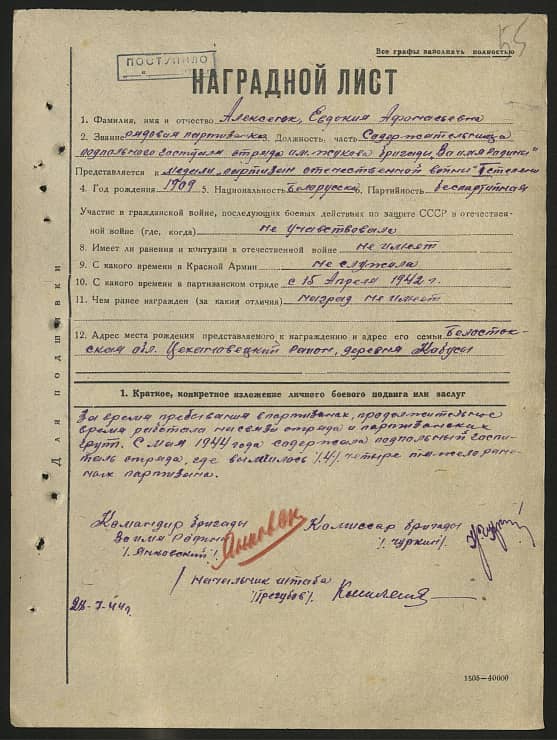 55
Все графы заполнять полностью
ПОСТУПИЛО
НАГРАДНОЙ ЛИСТ
1. Фамилия, имя и отчество Алексеюк, Евдокия Афанасьевна
2. Звание рядовая партизанка Должность, часть Содержательница
подпольного госпиталя отряда им. Жукова бригады „За имя Родины"
Представляется к медали „партизан отечественной войны" I степени
4. Год рождения 1909 5. Национальность Белорусска 6. Партийность беспартийная
Участие в гражданской войне, последующих боевых действиях по защите СССР в отечествен-
ной войне (где, когда) не учавствовала
8. Имеет ли ранения и контузии в отечественной войне не имеет
9. С какого времени в Красной Армии не служала
10. С какого времени в партизанском отряде с 15 Апреля 1942 г.
11. Чем ранее награжден (за какия отличия) наград не имеет
12. Адрес места рождения представляемого к награждению и адрес его семьи Белосток-
ская обл. Цехановецкий район, деревня Кабусы
Для подшивки
1. Краткое, конкретное изложение личного боевого подвига или заслуг
За время пребывания в партизанах, продолжительное
время работала на связи отряда и партизанских
групп. С мая 1944 года содержала подпольный госпи-
таль отряда, где вылечилось /4/ четыре тяжело ране-
ных партизана.
Командир бригады
За имя Родины
/Янковский/
Комиссар бригады
/Чуркин/
Начальник штаба
/Трегубов/
28-7-44 г.
1505—40000